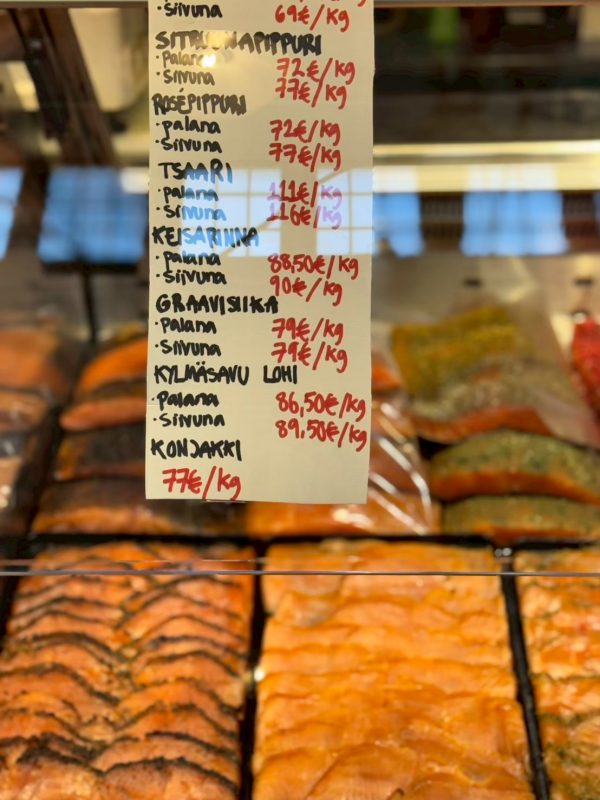 ·siivuna 69€/kg
SITRUUNAPIPPURI
·Palana 72€/kg
·Siivuna 77€/kg
ROSÉPIPPURI
·palana 72€/kg
·siivuna 77€/kg
TSAARI
·palana 111€/kg
·siivuna 116€/kg
KEISARINNA
·palana 88,50€/kg
·siivuna 90€/kg
GRAAVISIIKA
·palana 79€/kg
·siivuna 79€/kg
KYLMÄSAVU LOHI
·palana 86,50€/kg
·siivuna 89,50€/kg
KONJAKKI
77€/kg